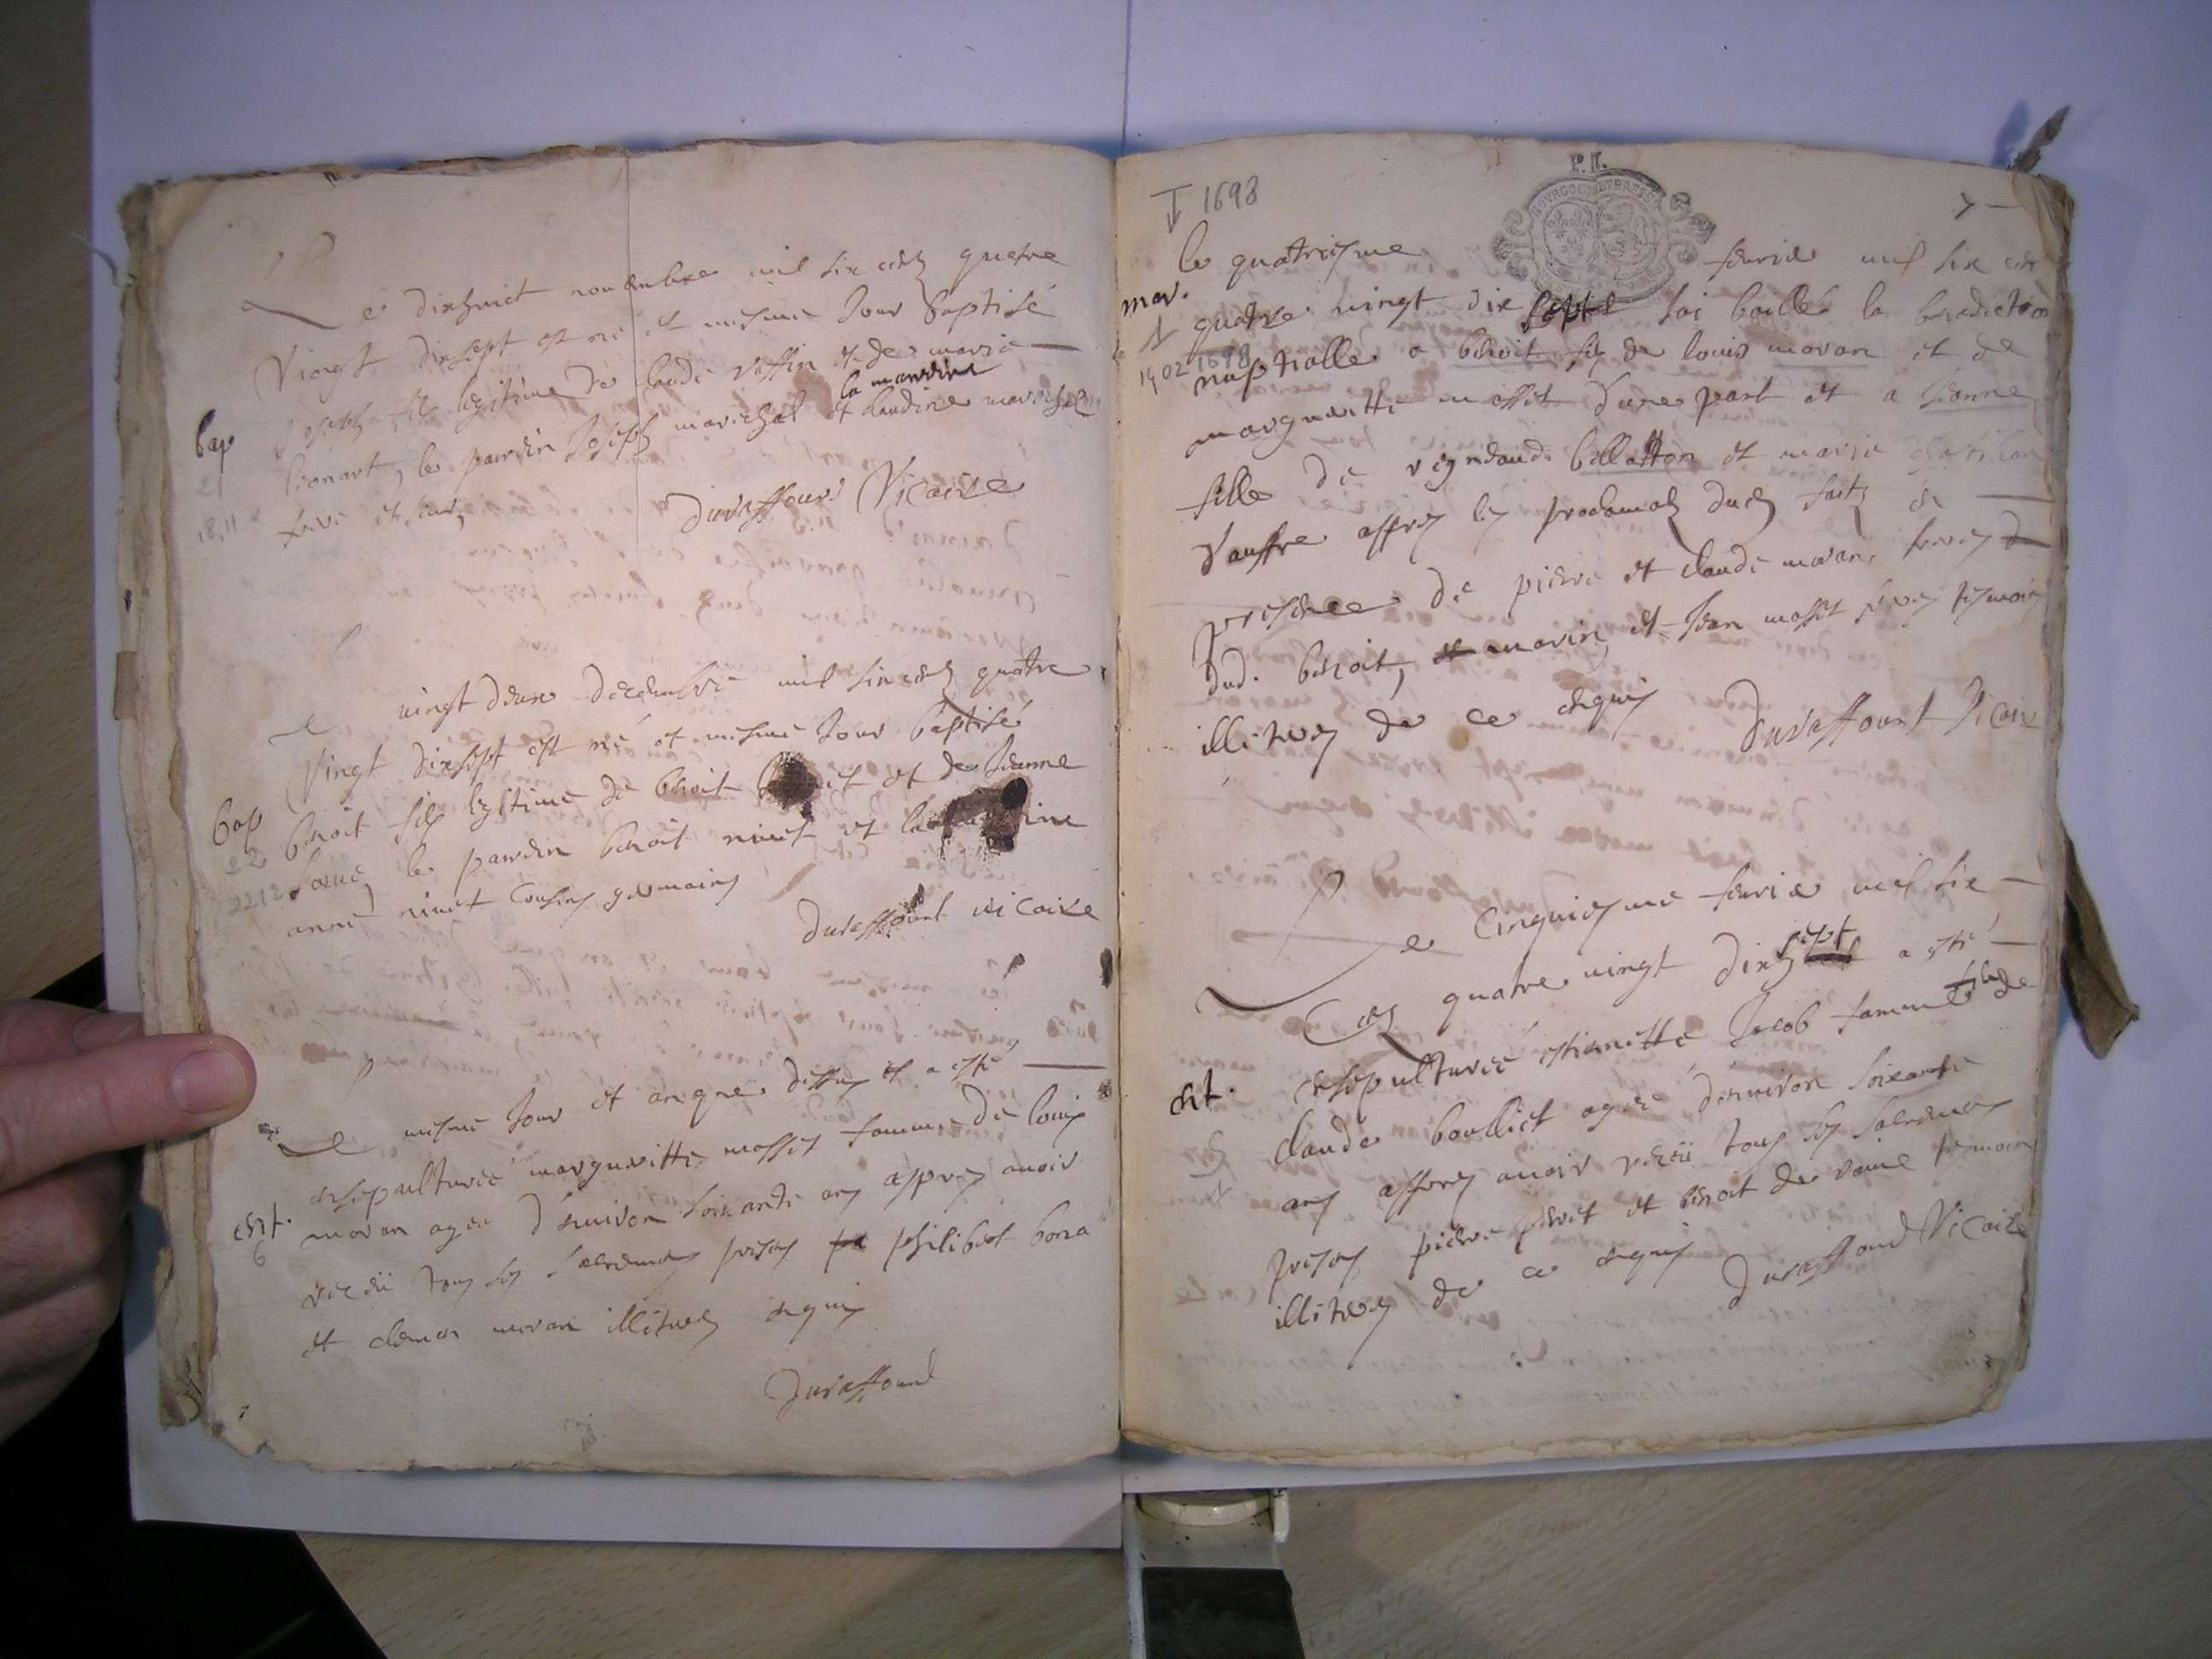 Le dixhuict novembre mil six cens quatre
Vingt dixsept est né et mesme Jour baptisé
bap
21
18.11
Joseph fils legitime de claude ruffin et de marie
lionart, le parrin Joseph marichal et claudine marichal
la marrine
frere et seur,
Duraffourt Vicaire
Le vingt deux decembre mil six cens quatre
Vingt dixsept est né et mesme Jour baptisé
bap
22
2212
benoit fils legitime de benoit et de Jeanne
le parrin benoit nivet et la
anne nivet cousins germains
Duraffourt vicaire
Le mesme Jour et an que dessus et a esté
ent.
6
ensepulturee margueritte massit famme de louis
moran agee d'environ soixante ans appres avoir
receü tous ses sacremens presens philibert bona
et moran illitres enquis
Duraffourd
1698
P.I.
le quatriesme fevrier mil six cens
mar.
1
1402 1698
quatre vingt dix sept Jai baillé la benediction
nuptialle a benoit fils de louis moran et de
margueritte massit d'une part et a Jeanne
fille de billatton et marie chatillon
d'auttre appres les proclamas deues faits en
presence de pierre et claude moran, freres
dud. benoit, marin, et Jean massit tesmoins
illitres de ce enquis Duraffourt Vicaire
Le Cinquiesme fevrier mil six
Cens quatre vingt dix sept a esté
ent.
ensepulturée estiennette Jacob famme de
claude boulliet agée d'environ soixante
ans appres avoir receü tous ses sacremens
presens pierre pivet et benoit de vaine temoins
illitres de ce enquis Duraffourd Vicaire